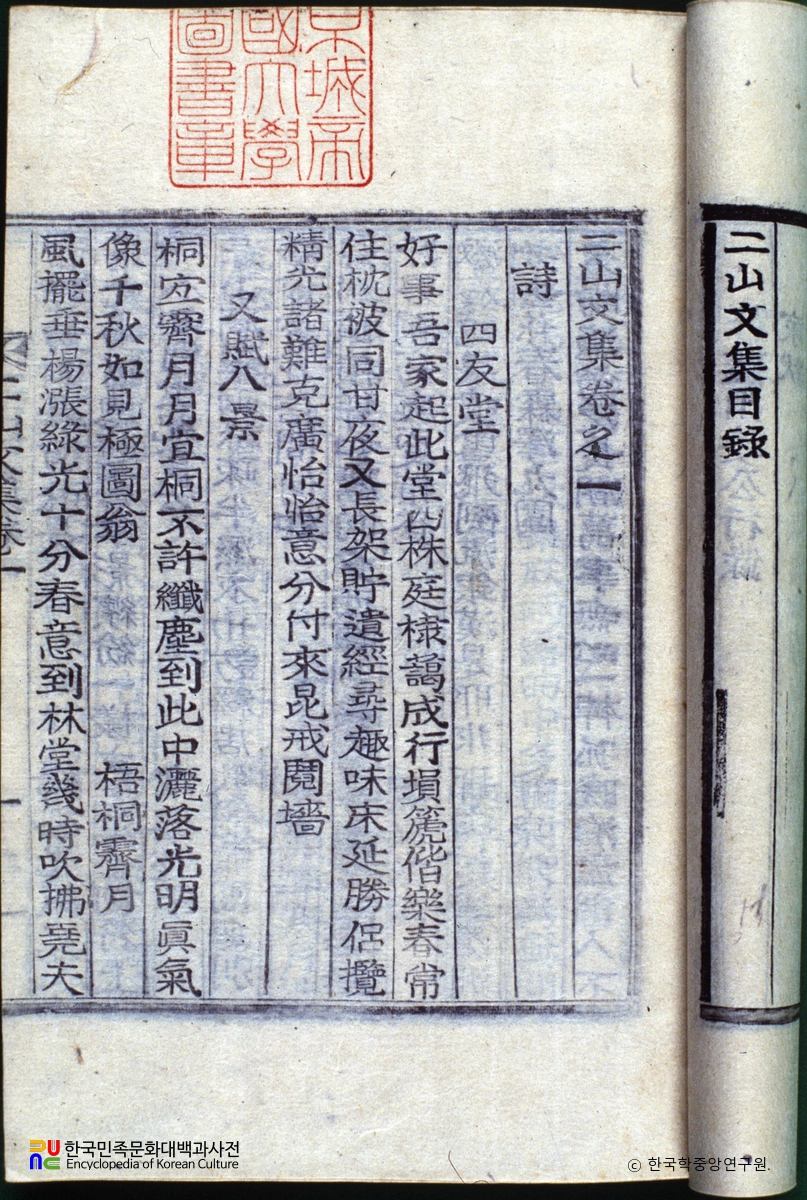 二山文集目錄
京城帝
國大學
圖書章
二山文集卷之一
詩
四友堂
好事吾家起此堂四株庭棣藹成行塤篪偕樂春常
住枕被同甘夜又長架貯遺經尋趣味床延勝侶攬
精光諸難克廣怡怡意分付來昆戒鬩墻
又賦八景
桐宜霽月月宜桐不許纖塵到此中灑落光明眞氣
像千秋如見極圖翁　梧桐霽月
風擺垂楊漲綠光十分春意到林堂幾時吹拂堯夫
二山文集卷一
한국민족문화대백과사전
Encyclopedia of Korean Culture
ⓒ 한국학중앙연구원.